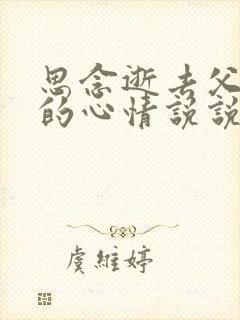 思念逝去父
的心情说说
虞維婷